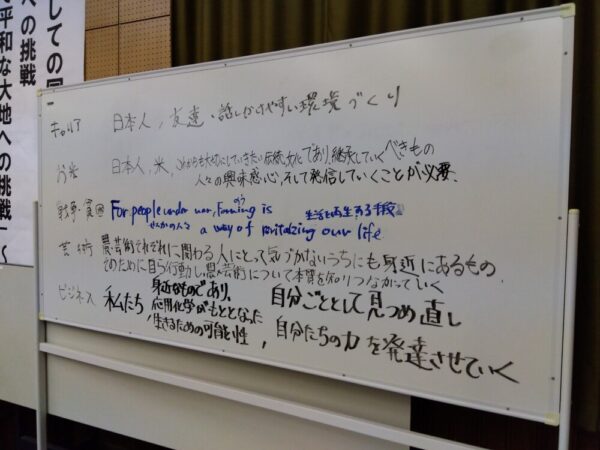 しての
への挑戦
平和な大地への挑戦」～
キャリア 日本人，友達・話しかけやすい環境づくり
お米 日本人，米，これからも大切にしていきたい伝統、文化であり、継承していくべきもの
人々の興味感心，そして発信していくことが必要、
戦争・貧困 For people under war, Farming is 生活を再生する手段
せんかの人々 a way of revitalizing our life
のう
芸術 農芸術それぞれに関わる人にとって気づかないうちにも身近にあるもの
そのために自ら行動し農芸術について本質を知りつなかっていく
ビジネス 私たち 身近なものであり、 自分ごととして見つめ直し
応用化学がもととなった
生きるための可能性， 自分たちの力を発達させていく